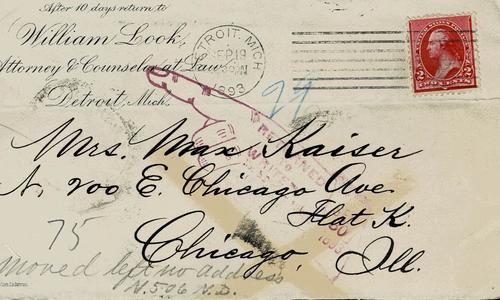 After 10 days return to
William Look,
Attorney & Counselor at Law,
Detroit, Mich.
DETROIT, MICH.
SEP 19
1893
2 2
TWO CENTS
24
RETURNED
TO
WRITER
Mrs. Max Kaiser
N. 200 E. Chicago Ave
Flat K.
Chicago, Ill.
75
moved left no address
N. 506 N.D.